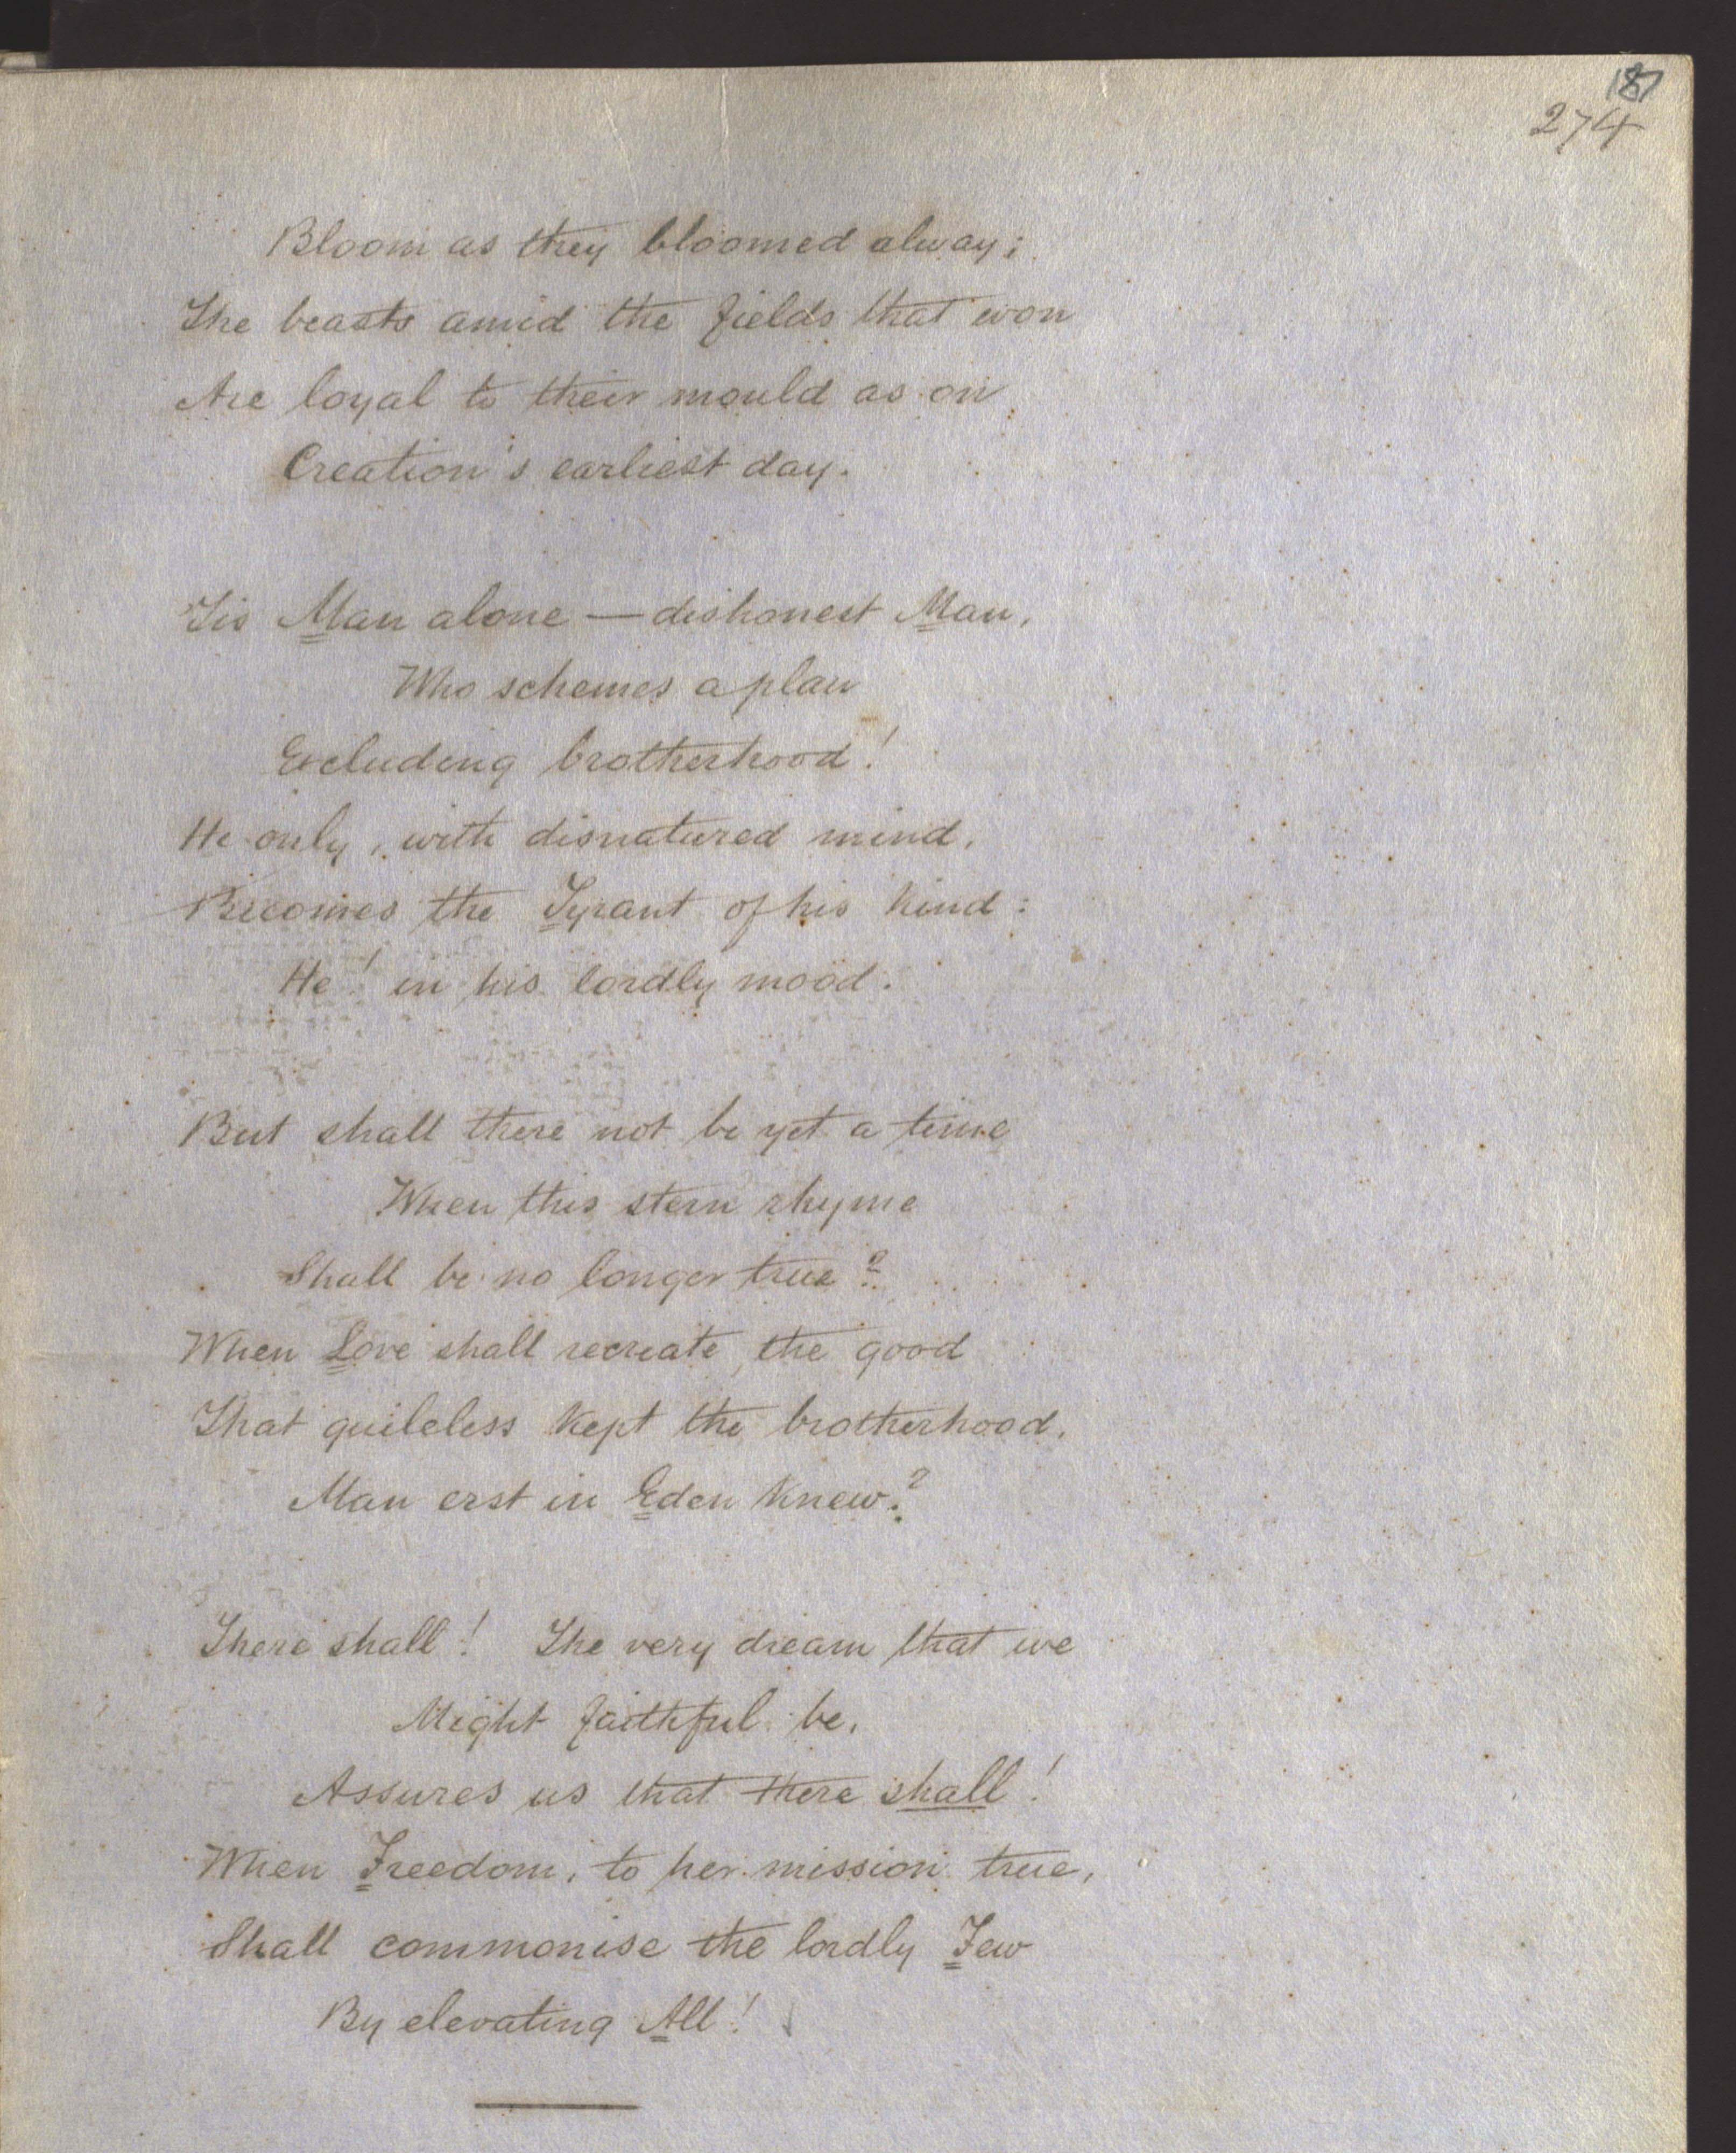 187
274
Bloom as they bloomed alway;
The beasts amid the fields that won
Are loyal to their mould as on
Creation's earliest day.
'Tis Man alone — dishonest Man,
Who schemes a plan
Excluding brotherhood!
He only, with disnatured mind,
Becomes the Tyrant of his kind:
He! in his lordly mood.
But shall there not be yet a time
When this stern rhyme
Shall be no longer true?
When Love shall recreate the good
That guileless kept the brotherhood,
Man erst in Eden knew?
There shall! The very dream that we
Might faithful be,
Assures us that there shall!
When Freedom, to her mission true,
Shall commonise the lordly Few
By elevating All!